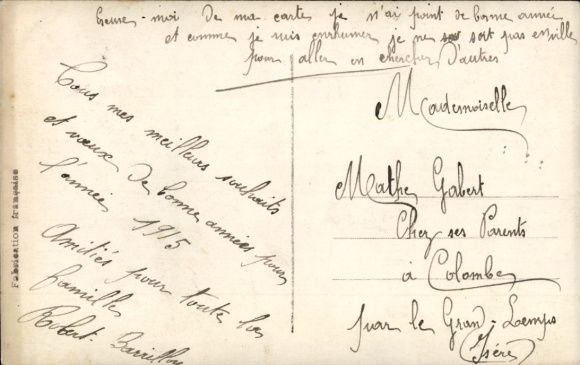 Excuse-moi de ma carte je n'ai point de bonne année
et comme je suis enrhumer je ne soit pas en ville
pour aller en chercher d'autres
Tous mes meilleurs souhaits
et vœux de bonne années pour
l'année 1915
Amitiés pour toute la
famille
Robert
Mademoiselle
Mathe Gabert
Chez ses Parents
à Colombe
par le Grand-Lemps
(Isère)
Fabrication française